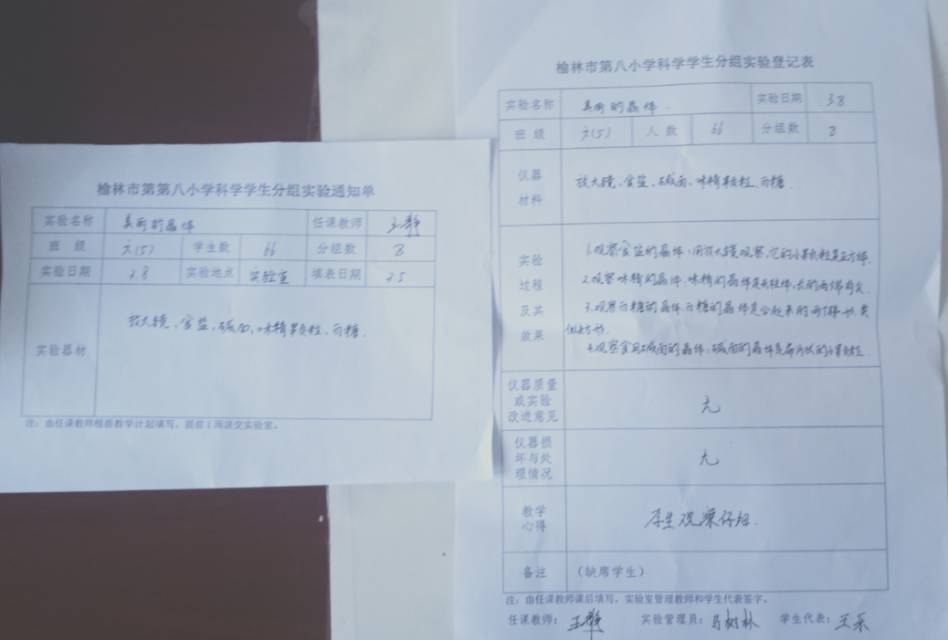 榆林市第第八小学科学学生分组实验通知单
实验名称 美丽的晶体 任课教师 王静
班 级 六(5) 学生数 66 分组数 8
实验日期 2.8 实验地点 实验室 填表日期 2.5
实验器材 放大镜、食盐、碱面、味精颗粒、白糖.
注:由任课教师根据教学计划填写,提前1周送交实验室。
榆林市第八小学科学学生分组实验登记表
实验名称 美丽的晶体. 实验日期 3.8
班 级 六(5) 人 数 66 分组数 8
仪器材料 放大镜、食盐、碱面、味精颗粒、白糖.
实验过程及其效果
1.观察食盐的晶体,用放大镜观察,它的小颗粒是立方体.
2.观察味精的晶体,味精的晶体是柱体,
3.观察白糖的晶体,白糖的晶体是
4.观察食用碱面的晶体,碱面的晶体是扁片状的小颗粒
仪器质量或实验改进意见 无
仪器损坏与处理情况 无
教学心得 学生观察仔细.
备注 (缺席学生)
注:由任课教师课后填写,实验室管理教师和学生代表签字。
任课教师:王静 实验管理员:马树林 学生代表:王乐